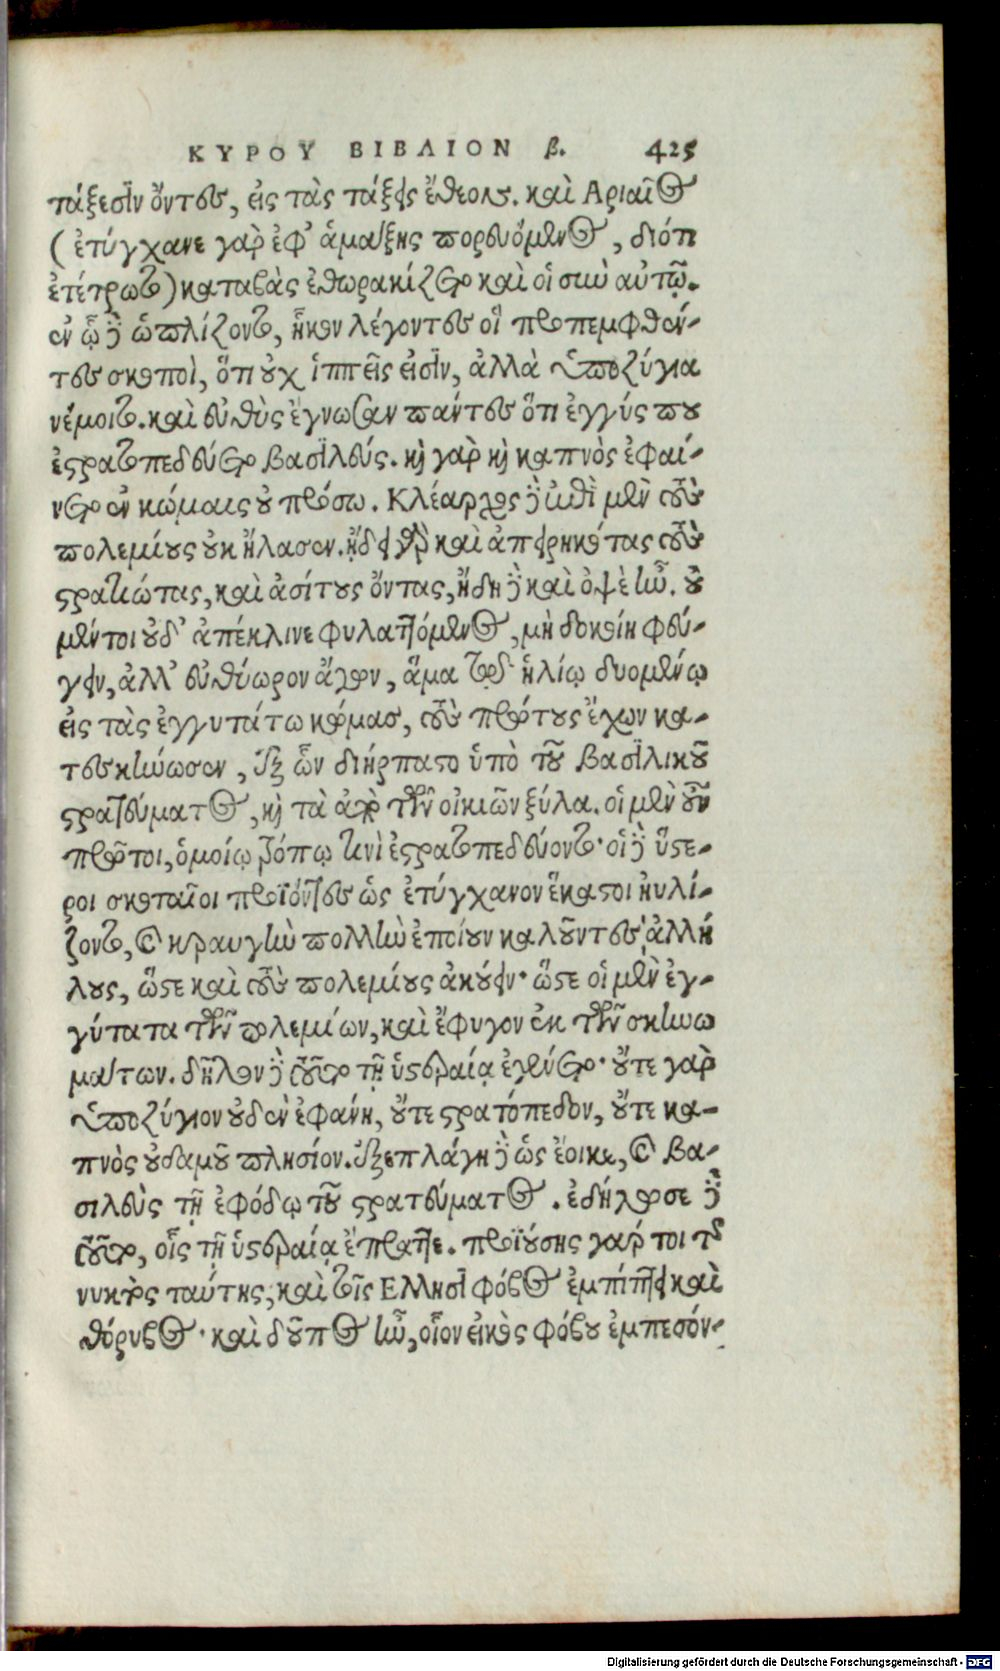 ΚΥΡΟΥ ΒΙΒΛΙΟΝ β. 425
τάξεσιν ὄντες, εἰς τὰς τάξεις ἔθεον. καὶ Αριαῖος
(ἐτύγχανε γὰρ ἐφ' ἁμάξης πορευόμενος, διότι
ἐτέτρωτο) καταβὰς ἐθωρακίζετο καὶ οἱ σὺν αὐτῷ.
ἐν ᾧ δὲ ὡπλίζοντο, ἧκον λέγοντες οἱ προπεμφθέν-
τες σκοποὶ, ὅτι οὐχ ἱππεῖς εἰσὶν, ἀλλὰ ὑποζύγια
νέμοιτο. καὶ εὐθὺς ἔγνωσαν πάντες ὅτι ἐγγύς που
ἐστρατοπεδεύετο βασιλεύς. καὶ γὰρ καὶ καπνὸς ἐφαί-
νετο ἐν κώμαις οὐ πρόσω. Κλέαρχος δὲ ἐπὶ μὲν τοὺς
πολεμίους οὐκ ἤλασεν. ᾔδει γὰρ καὶ ἀπειρηκότας τοὺς
στρατιώτας, καὶ ἀσίτους ὄντας, ἤδη δὲ καὶ ὀψὲ ἦν. οὐ
μέντοι οὐδ' ἀπέκλινε φυλαττόμενος, μὴ δοκοίη φεύ-
γειν, ἀλλ' εὐθύωρον ἄγων, ἅμα τῷ ἡλίῳ δυομένῳ
εἰς τὰς ἐγγυτάτω κώμας, τοὺς πρώτους ἔχων κα-
τεσκήνωσεν, ἐξ ὧν διήρπαστο ὑπὸ τοῦ βασιλικοῦ
στρατεύματος, καὶ τὰ ἀπὸ τῶν οἰκιῶν ξύλα. οἱ μὲν οὖν
πρῶτοι, ὁμοίῳ τρόπῳ τινὶ ἐστρατοπεδεύοντο· οἱ δὲ ὕστε-
ροι σκοταῖοι προϊόντες ὡς ἐτύγχανον ἕκαστοι ηὐλί-
ζοντο, καὶ κραυγὴν πολλὴν ἐποίουν καλοῦντες ἀλλή
λους, ὥστε καὶ τοὺς πολεμίους ἀκούειν· ὥστε οἱ μὲν ἐγ-
γύτατα τῶν πολεμίων, καὶ ἔφυγον ἐκ τῶν σκηνω
μάτων. δῆλον δὲ τοῦτο τῇ ὑστεραίᾳ ἐγένετο· οὔτε γὰρ
ὑποζύγιον οὐδὲν ἐφάνη, οὔτε στρατόπεδον, οὔτε κα-
πνὸς οὐδαμοῦ πλησίον. ἐξεπλάγη δὲ ὡς ἔοικε, καὶ βα-
σιλεὺς τῇ ἐφόδῳ τοῦ στρατεύματος. ἐδήλωσε δὲ
τοῦτο, οἷς τῇ ὑστεραίᾳ ἔπραττε. προϊούσης γάρ τοι τῆς
νυκτὸς ταύτης, καὶ τοῖς Ελλησι φόβος ἐμπίπτει καὶ
θόρυβος· καὶ δοῦπος ἦν, οἷον εἰκὸς φόβου ἐμπεσόν-
Digitalisierung gefördert durch die Deutsche Forschungsgemeinschaft - DFG